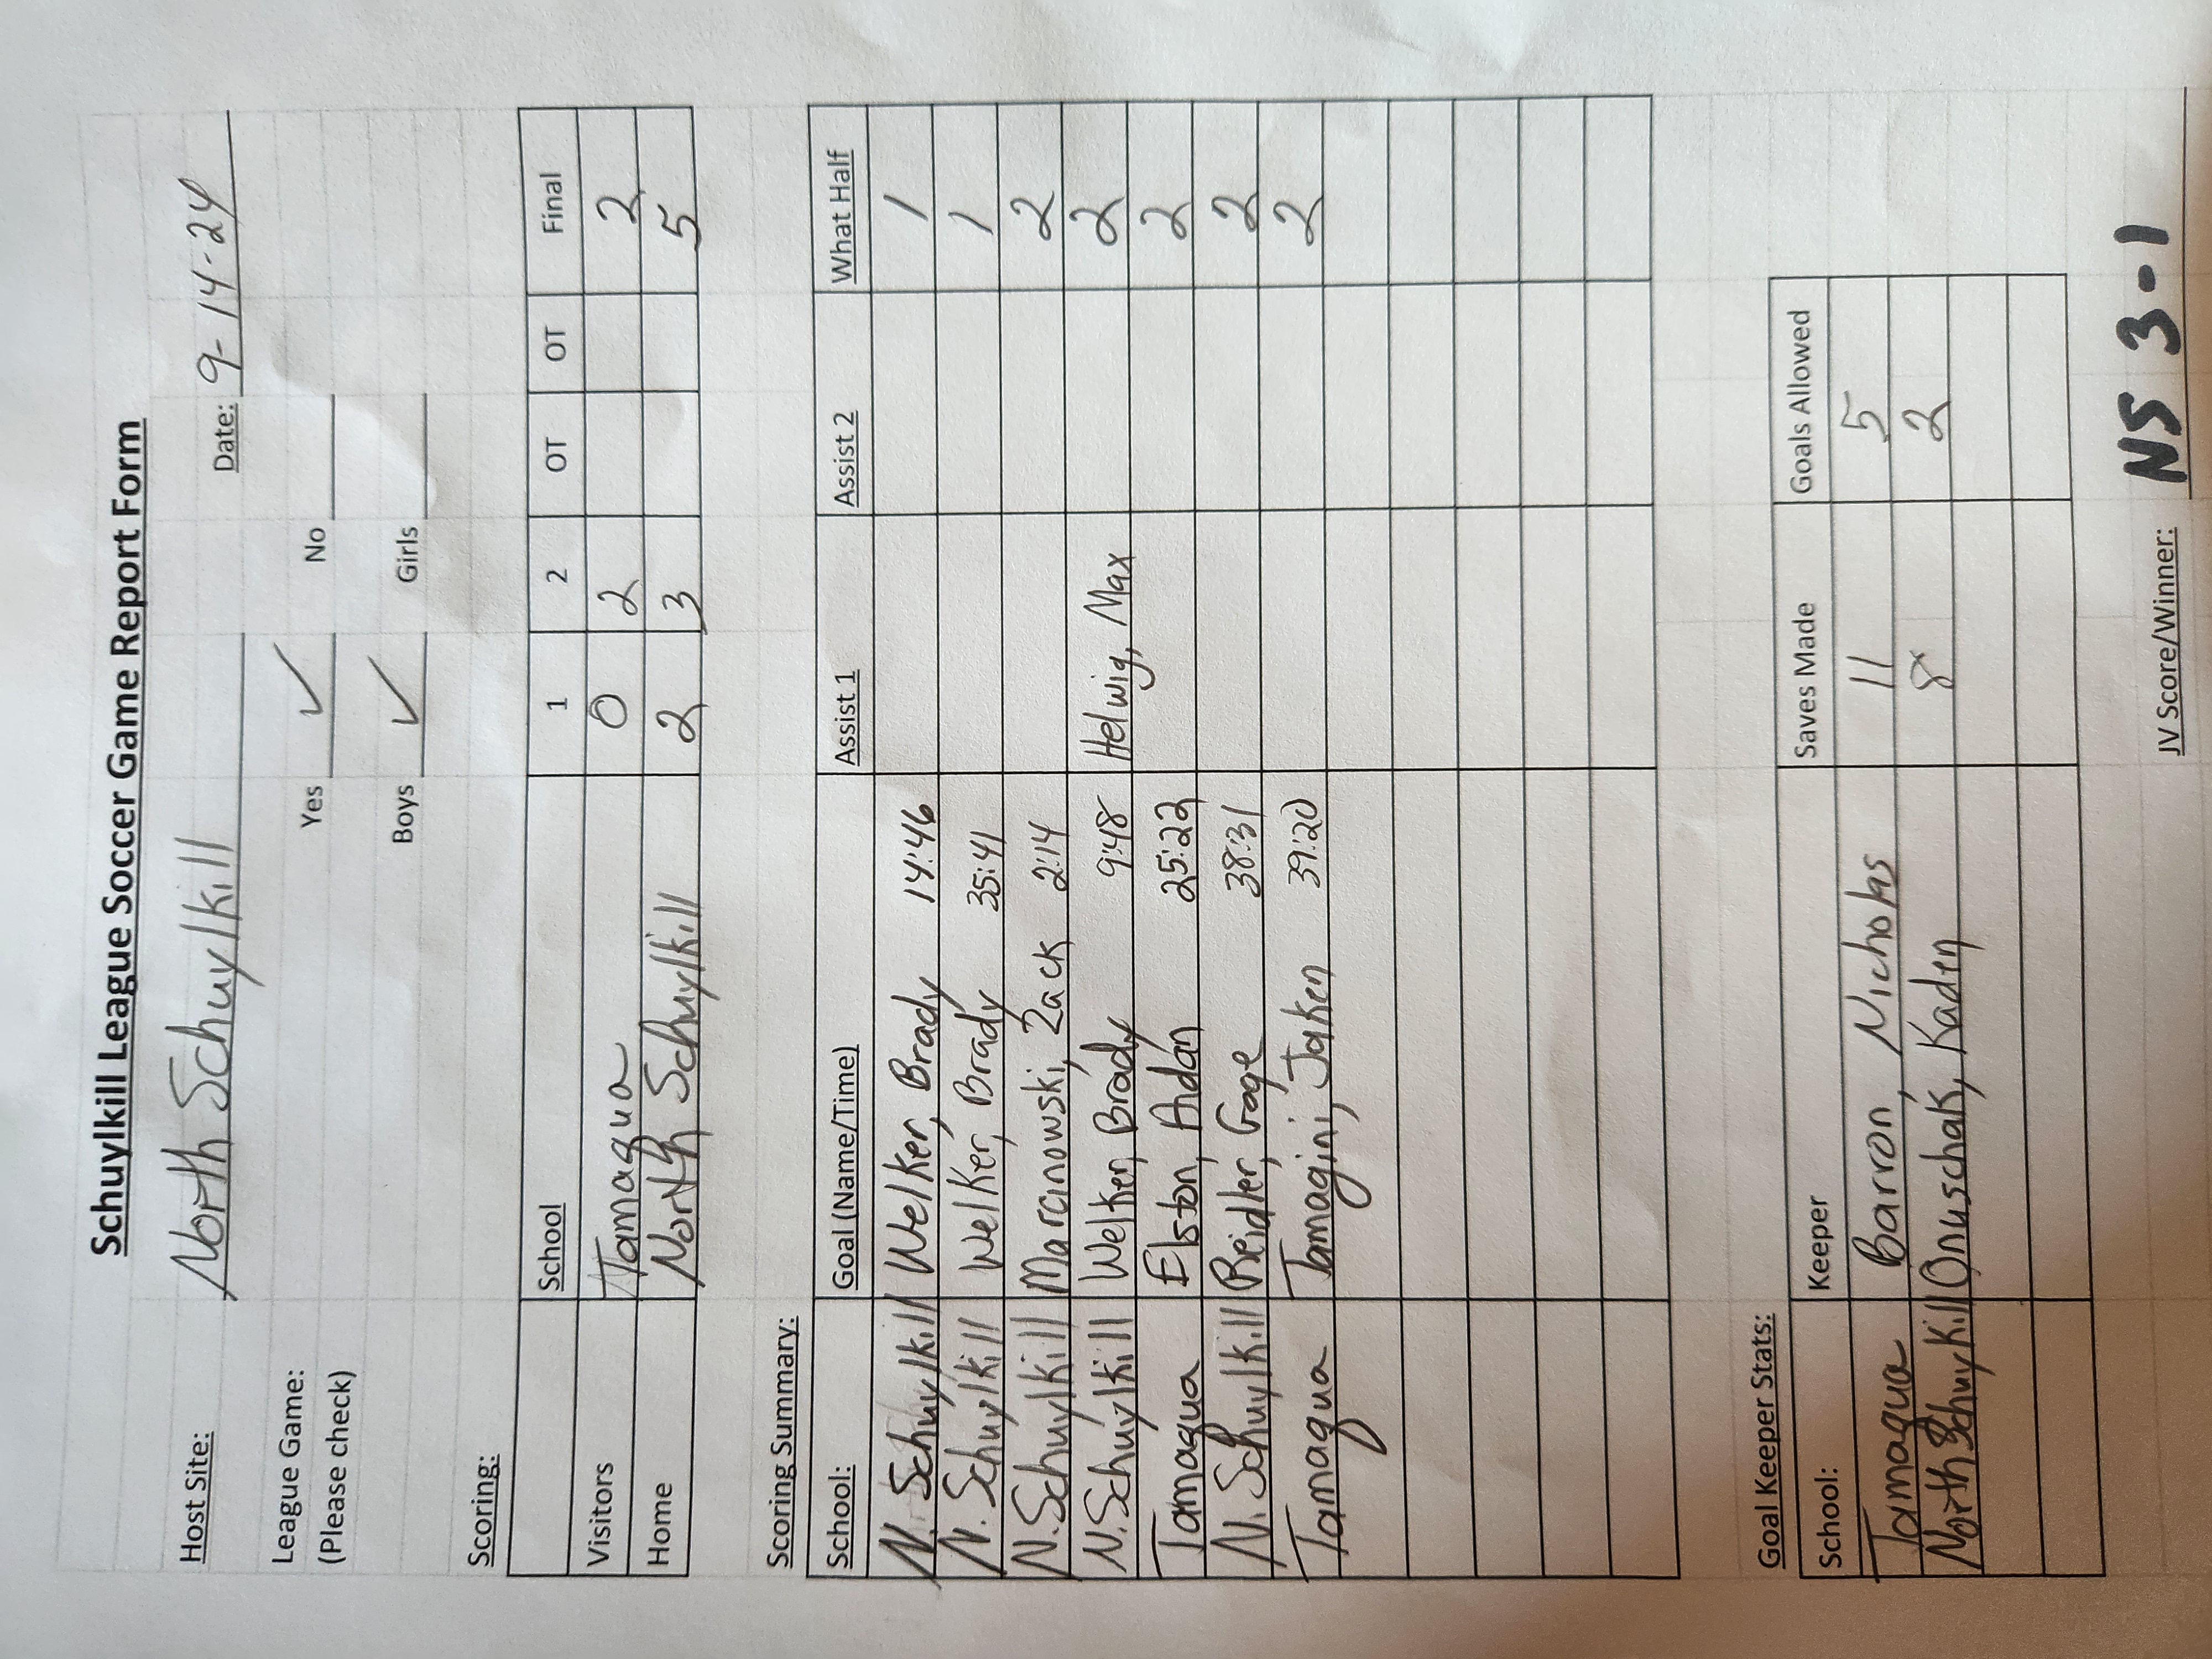 Schuylkill League Soccer Game Report Form
Host Site: North Schuylkill Date: 9-14-24
League Game: Yes ✓ No
(Please check) Boys ✓ Girls
Scoring:
School 1 2 OT OT Final
Visitors Tamaqua 0 2 2
Home North Schuylkill 2 3 5
Scoring Summary:
School: Goal (Name/Time) Assist 1 Assist 2 What Half
N. Schuylkill Welker, Brady 14:46 1
N. Schuylkill Welker, Brady 35:41 1
N. Schuylkill Marcinowski, Zack 2:14 2
N. Schuylkill Welker, Brady 9:48 Helwig, Max 2
Tamaqua Elston, Aidan 25:22 2
N. Schuylkill Reidler, Gage 38:31 2
Tamaqua Tamagini, Jaken 39:20 2
Goal Keeper Stats:
School: Keeper Saves Made Goals Allowed
Tamaqua Barron, Nicholas 11 5
North Schuylkill Onuschak, Kaden 8 2
JV Score/Winner: NS 3-1